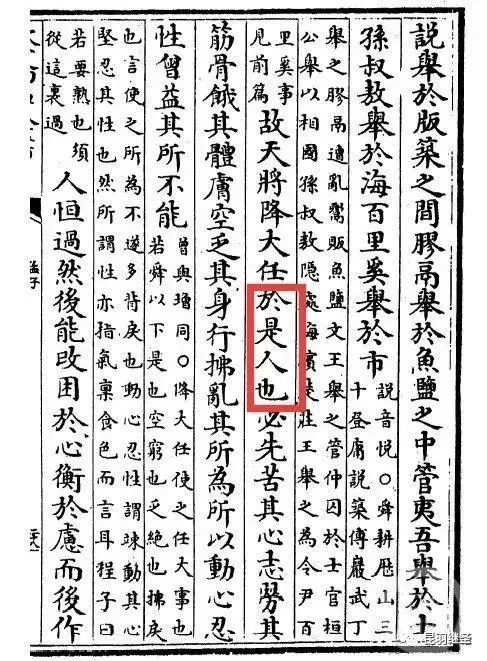 說舉於版築之間膠鬲舉於魚鹽之中管夷吾舉於士
孫叔敖舉於海百里奚舉於市
說音悅○舜耕歷山三
十登庸說築傅巖武丁
舉之膠鬲遭亂鬻販魚鹽文王舉之管仲囚於士官桓
公舉以相國孫叔敖隱處海濱楚莊王舉之為令尹百
里奚事
見前篇
故天將降大任於是人也必先苦其心志勞其
筋骨餓其體膚空乏其身行拂亂其所為所以動心忍
性曾益其所不能
曾與增同○降大任使之任大事也
若舜以下是也空窮也乏絕也拂戾
也言使之所為不遂多背戾也動心忍性謂竦動其心
堅忍其性也然所謂性亦指氣稟食色而言耳程子曰
若要熟也須
從這裏過
人恒過然後能改困於心衡於慮而後作
孟子
昆羽继圣